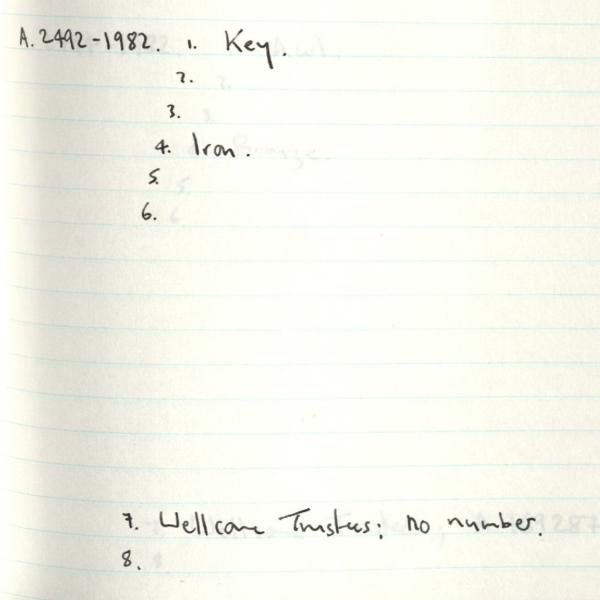 A.2492-1982. 1. Key.
2.
3.
4. Iron.
5.
6.
7. Wellcome Trustees; no number.
8.